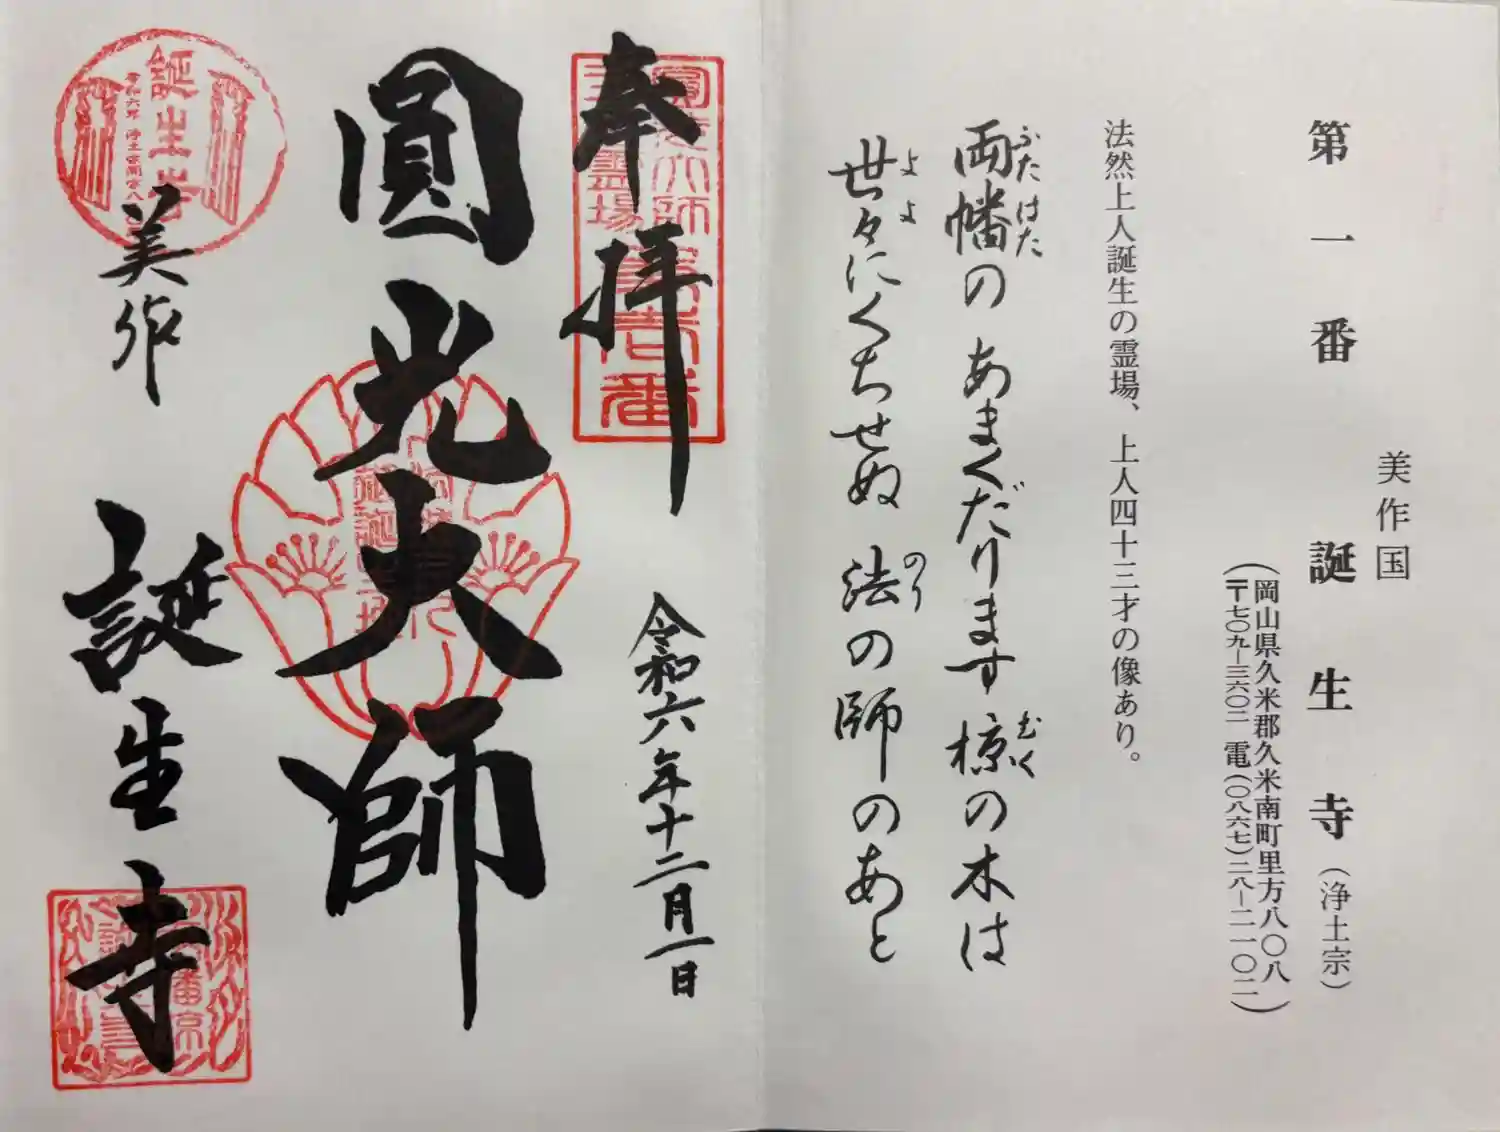 美作国
第一番 誕生寺(浄土宗)
(岡山県久米郡久米南町里方八〇八
〒七〇九ー三六〇二 電(〇八六七)二八ー二一〇二)
法然上人誕生の霊場、上人四十三才の像あり。
両幡の あまくだります 椋の木は
ふた はた
むく
世々にくちせぬ 法の師のあと
よ よ
のり
奉拝
圓光大師
霊場
第壱番
令和六年十二月一日
圓光大師
誕生寺
令和六年 浄土宗開宗八
美作
誕生寺